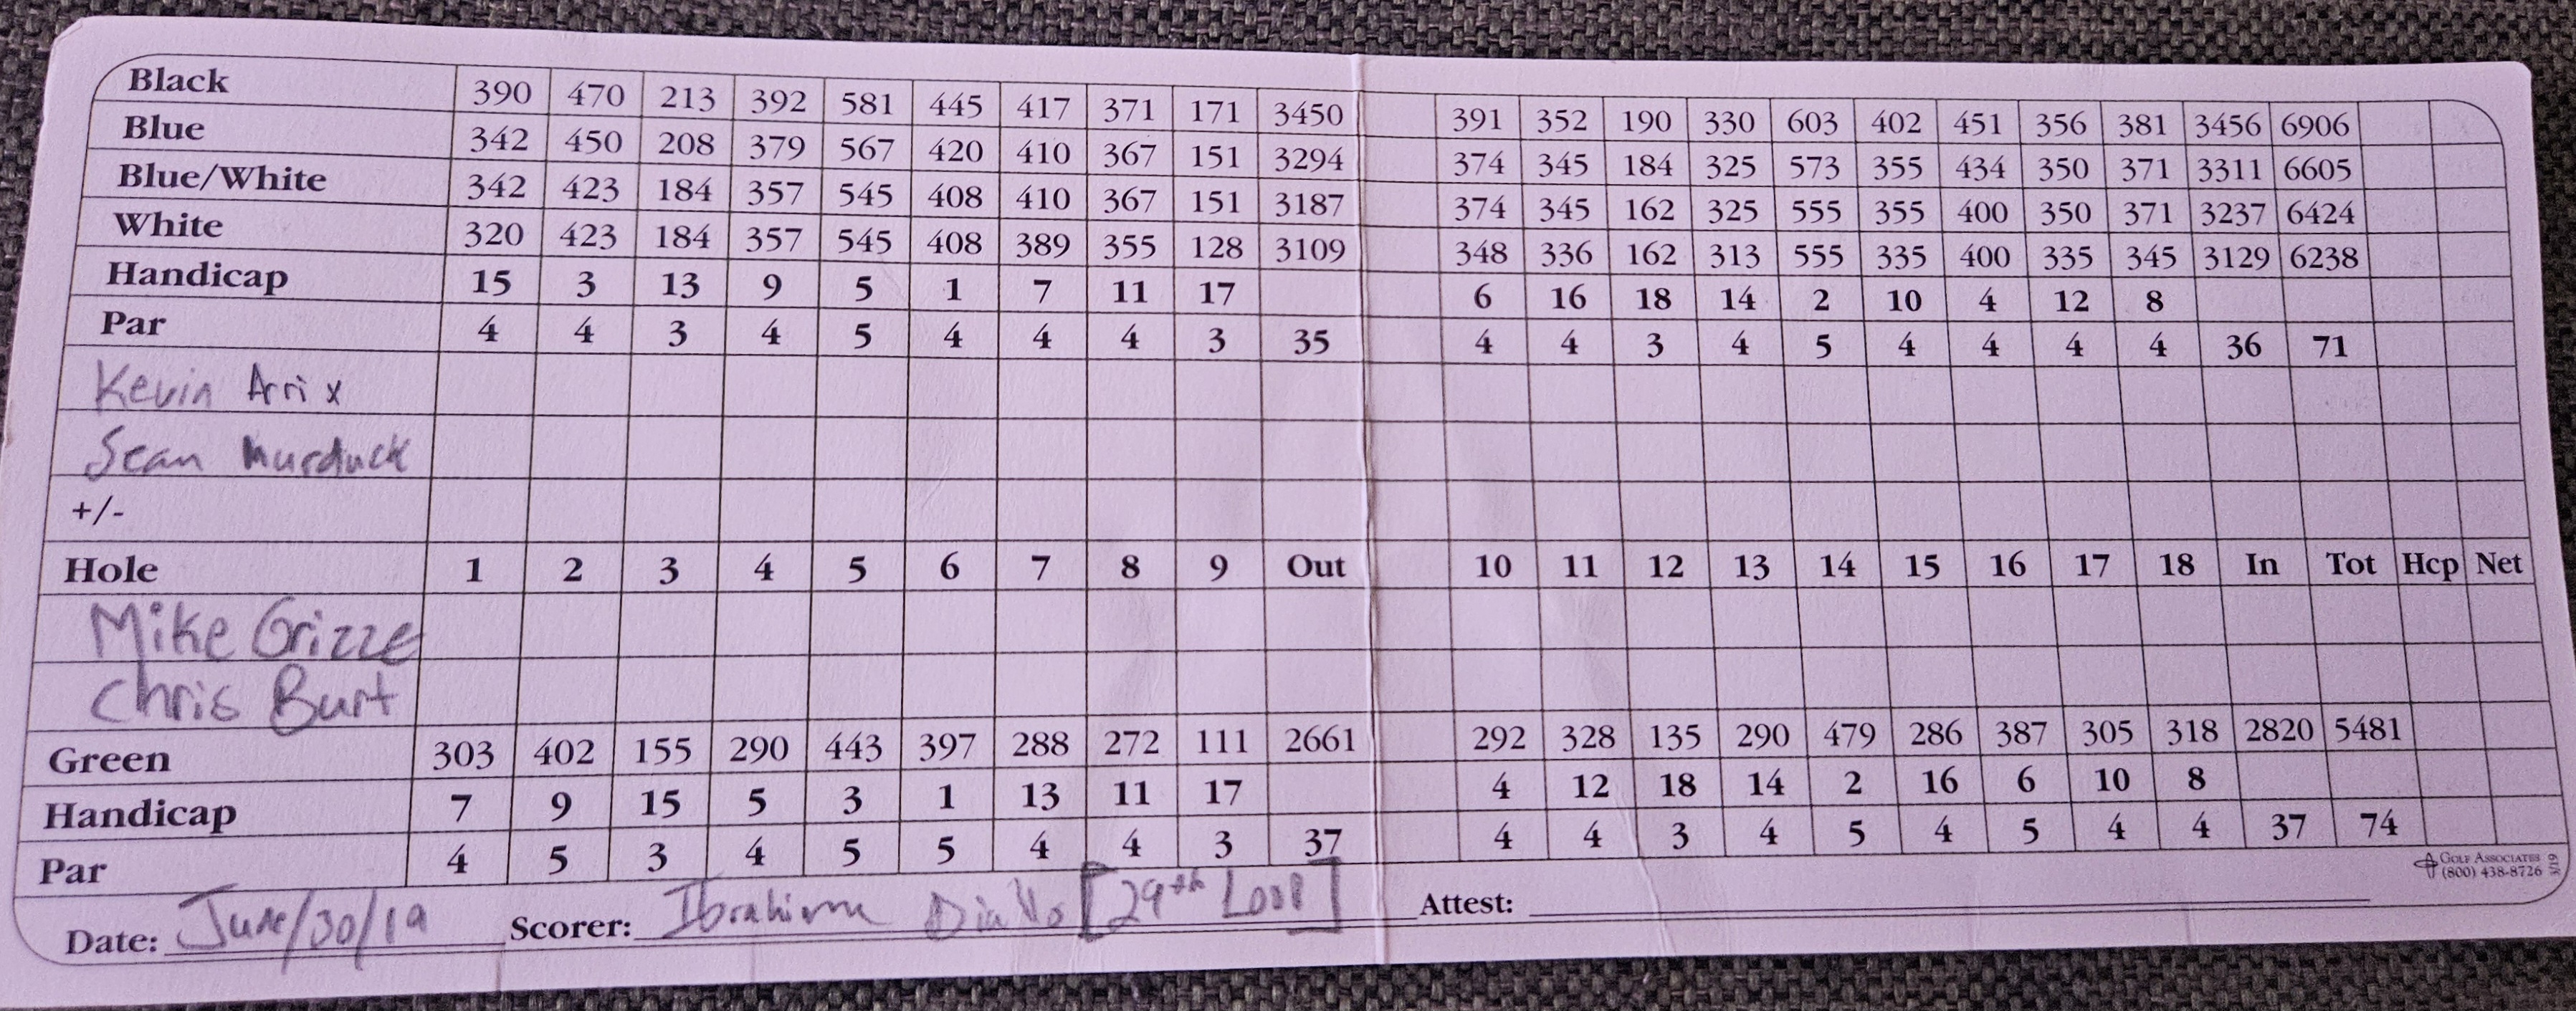 Black 390 470 213 392 581 445 417 371 171 3450 391 352 190 330 603 402 451 356 381 3456 6906
Blue 342 450 208 379 567 420 410 367 151 3294 374 345 184 325 573 355 434 350 371 3311 6605
Blue/White 342 423 184 357 545 408 410 367 151 3187 374 345 162 325 555 355 400 350 371 3237 6424
White 320 423 184 357 545 408 389 355 128 3109 348 336 162 313 555 335 400 335 345 3129 6238
Handicap 15 3 13 9 5 1 7 11 17 6 16 18 14 2 10 4 12 8
Par 4 4 3 4 5 4 4 4 3 35 4 4 3 4 5 4 4 4 4 36 71
Kevin Arrix
Sean Murduck
+/-
Hole 1 2 3 4 5 6 7 8 9 Out 10 11 12 13 14 15 16 17 18 In Tot Hcp Net
Mike Grizze
Chris Burt
Green 303 402 155 290 443 397 288 272 111 2661 292 328 135 290 479 286 387 305 318 2820 5481
Handicap 7 9 15 5 3 1 13 11 17 4 12 18 14 2 16 6 10 8
Par 4 5 3 4 5 5 4 4 3 37 4 4 3 4 5 4 5 4 4 37 74
Golf Associates
(800) 438-8726
3/19
Date: June/30/19 Scorer: Ibrahima Diallo [29th Loop] Attest: